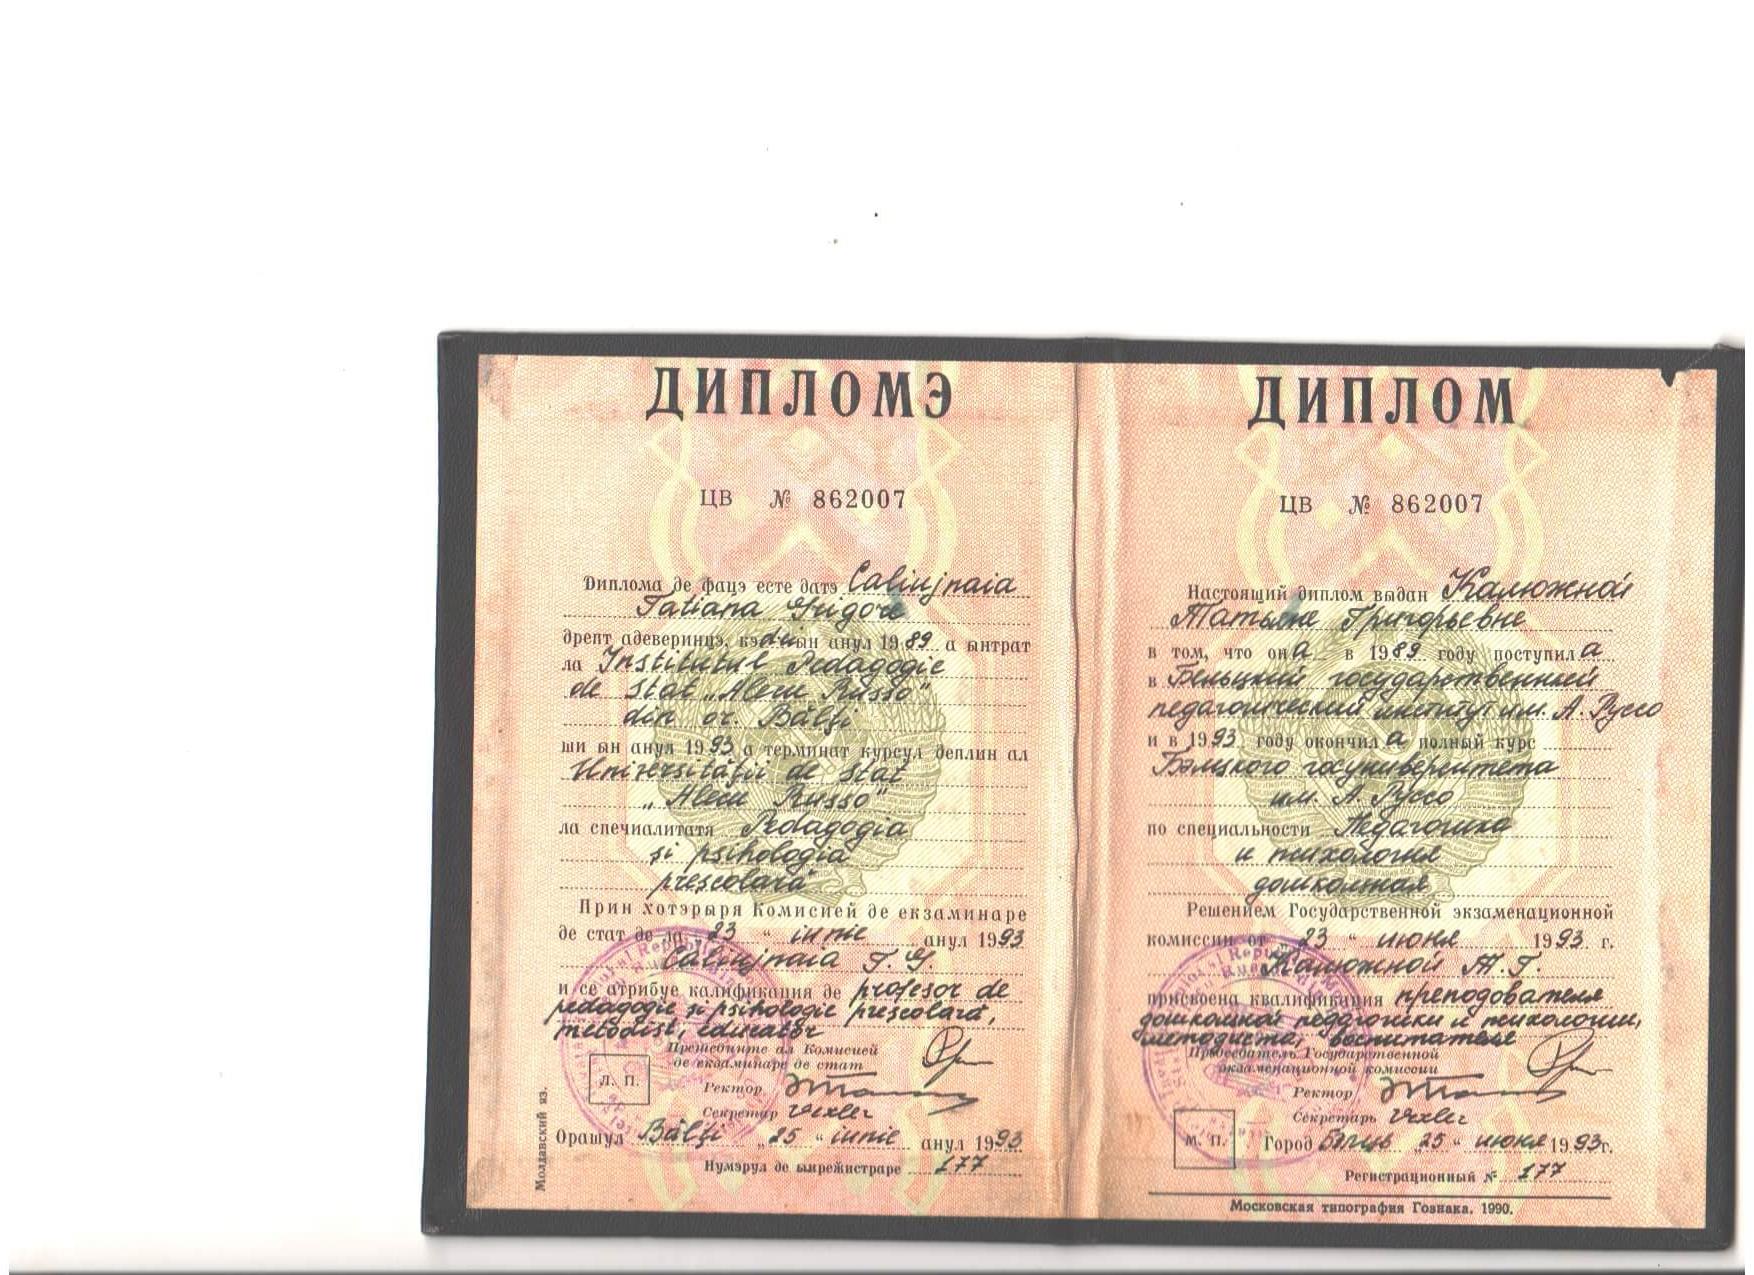 ДИПЛОМЭ
ЦВ № 862007
Диплома де фацэ есте датэ Caliujnaia
Tatiana Grigore
дрепт адеверинцэ, кэ din ын анул 1989 а ынтрат
ла Institutul Pedagogic
de Stat „Alecu Russo"
din or. Bălți
ши ын анул 1993 а терминат курсул деплин ал
Universității de Stat
„Alecu Russo"
ла спечиалитатя Pedagogia
și psihologia
preșcolară
Прин хотэрыря Комисией де екзаминаре
де стат де ла „23" iunie анул 1993
Caliujnaia T. G.
и се атрибуе калификация де profesor de
pedagogie și psihologie preșcolară,
metodist, educator
Прешединте ал Комисией
де екзаминаре де стат
Л. П.
Ректор
Секретар Vexler
Орашул Bălți „25" iunie анул 1993
Нумэрул де ынрежистраре 177
Молдавский яз.
ДИПЛОМ
ЦВ № 862007
Настоящий диплом выдан Калюжной
Татьяне Григорьевне
в том, что она в 1989 году поступила
в Бельцкий государственный
педагогический институт им. А. Руссо
и в 1993 году окончила полный курс
Бэлцкого госуниверситета
им. А. Руссо
по специальности Педагогика
и психология
дошкольная
Решением Государственной экзаменационной
комиссии от „23" июня 1993 г.
Калюжной Т. Г.
присвоена квалификация преподователя
дошкольной педагогики и психологии,
методиста, воспитателя
Председатель Государственной
экзаменационной комиссии
Ректор
Секретарь Vexler
М. П.
Город Бельцы „25" июня 1993г.
Регистрационный № 177
Московская типография Гознака. 1990.